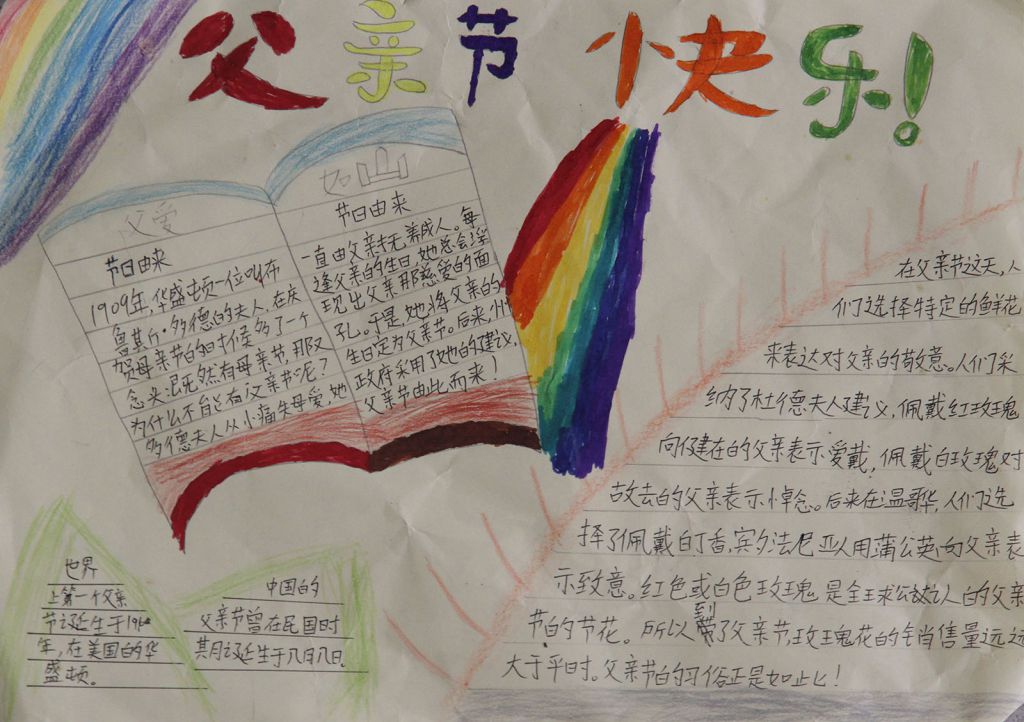 父亲节快乐!
父爱
如山
节日由来
1909年,华盛顿一位叫布
鲁其斤·多德的夫人,在庆
贺母亲节的时候多了一个
念头:既然有母亲节,那又
为什么不能有父亲节呢?
多德夫人从小痛失母爱,她
节日由来
一直由父亲抚养成人。每
逢父亲的生日,她总会浮
现出父亲那慈爱的面
孔。于是,她将父亲的
生日定为父亲节。后来,州
政府采用了她的建议,
父亲节由此而来)
在父亲节这天,人
们选择特定的鲜花
来表达对父亲的敬意。人们采
纳了杜德夫人建议,佩戴红玫瑰
向健在的父亲表示爱戴,佩戴白玫瑰对
故去的父亲表示悼念。后来在温哥华,人们选
择了佩戴白丁香,宾夕法尼亚人用蒲公英向父亲表
示致意。红色或白色玫瑰是全球公认的父亲
节的节花。所以到了父亲节玫瑰花的销售量远远
大于平时。父亲节的习俗正是如此!
世界
上第一个父亲
节诞生于19
年,在美国的华
盛顿。
中国的
父亲节曾在民国时
其月诞生于八月八日.